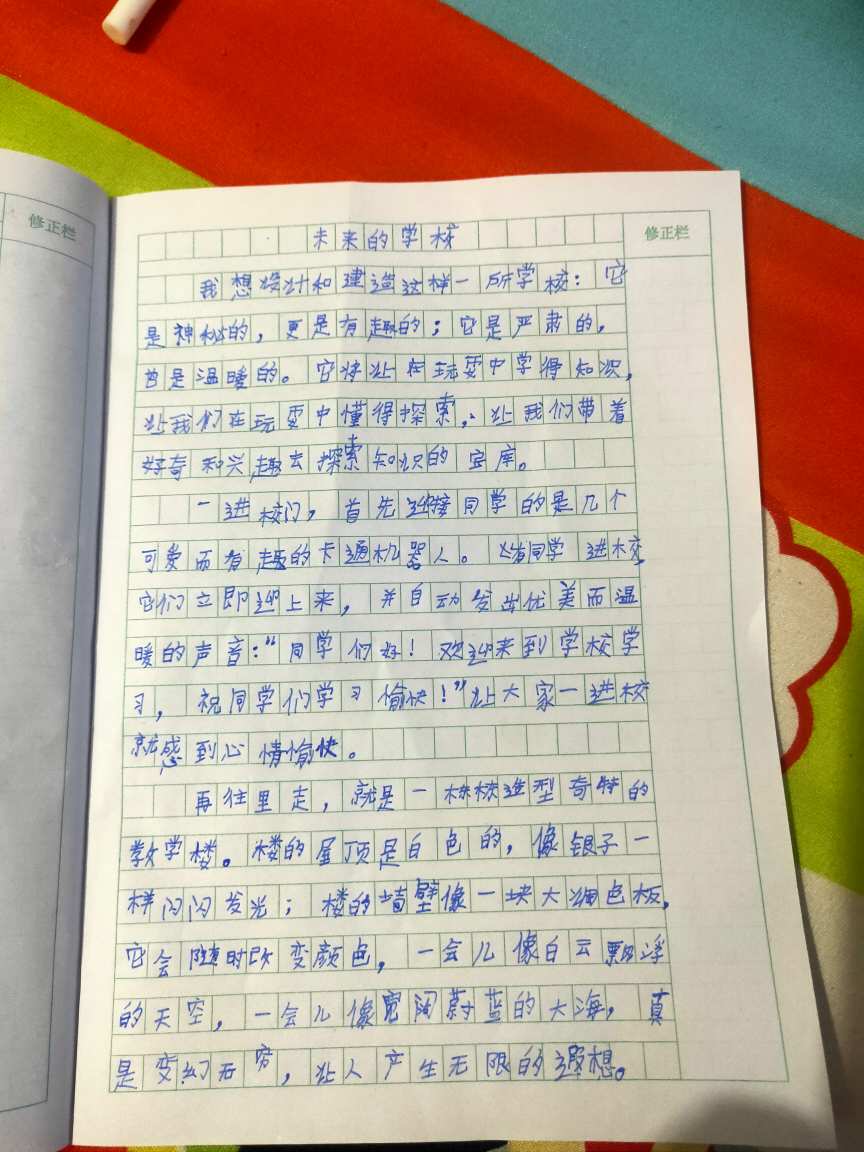 修正栏
未来的学校
修正栏
我想设计和建造这样一所学校：它
是神秘的，更是有趣的；它是严肃的，
也是温暖的。它将让在玩耍中学得知识，
让我们在玩耍中懂得探索，让我们带着
好奇和兴趣去探索知识的宝库。
一进校门，首先迎接同学的是几个
可爱而有趣的卡通机器人。 同学进校
它们立即迎上来，并自动发出优美而温
暖的声音：“同学们好！欢迎来到学校学
习，祝同学们学习愉快！”让大家一进校
就感到心情愉快。
再往里走，就是一栋栋造型奇特的
教学楼。楼的屋顶是白色的，像银子一
样闪闪发光；楼的墙壁像一块大调色板，
它会随时改变颜色，一会儿像白云飘浮
的天空，一会儿像宽阔蔚蓝的大海，真
是变幻无穷，让人产生无限的遐想。